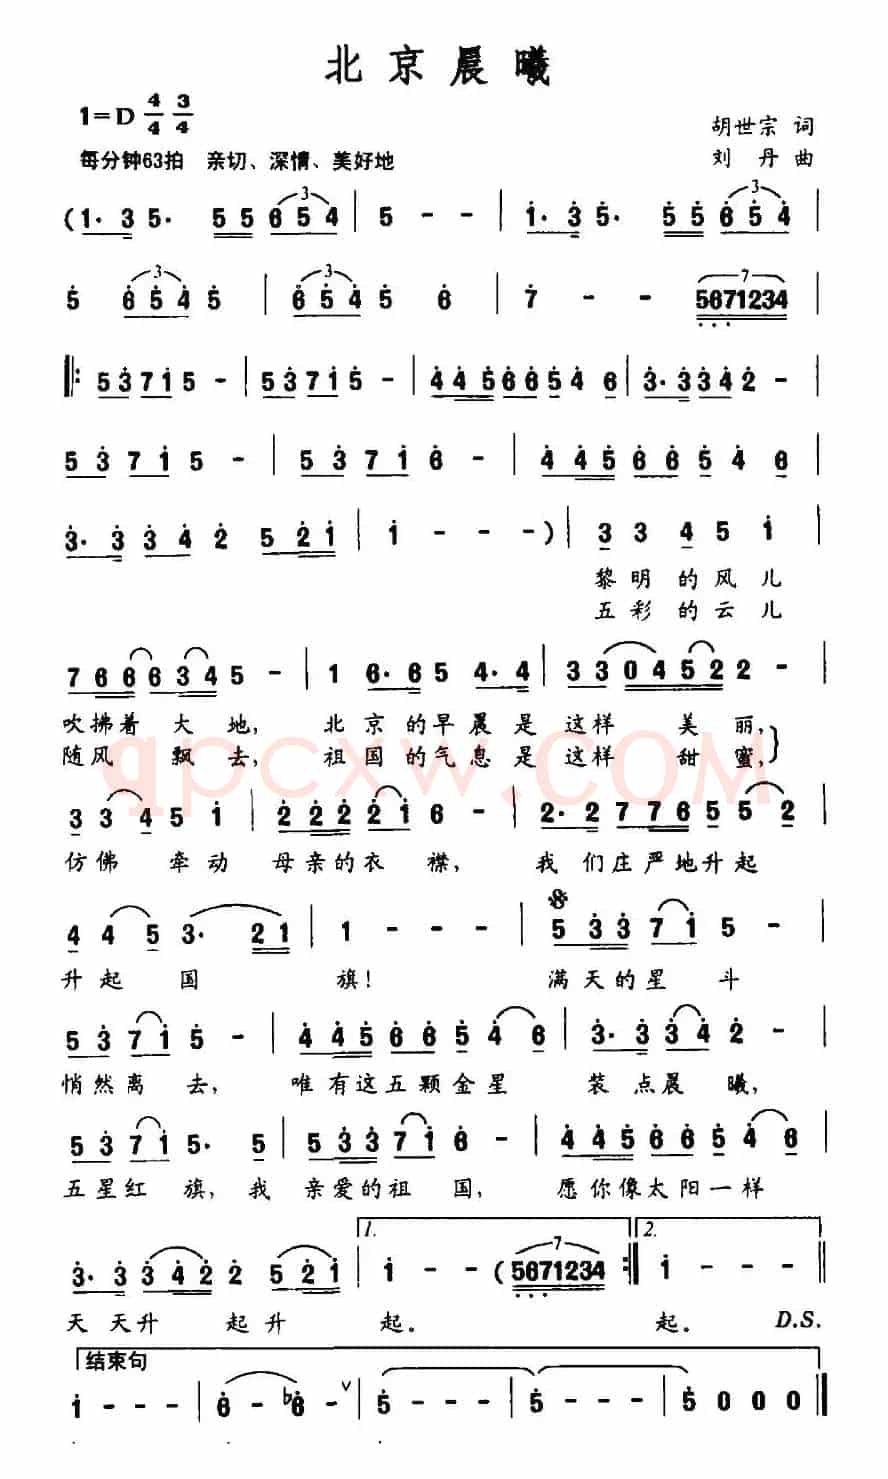 北京晨曦
1=D 4/4 3/4
胡世宗 词
每分钟63拍 亲切、深情、美好地
刘丹 曲
(1·3 5· 55 654 | 5 - - | 1·3 5· 55 654 |
5 654 5 | 654 5 6 | 7 - - 5671234 |
‖: 5371 5 - | 5371 5 - | 445665 4 6 | 3·334 2 - |
5371 5 - | 5371 6 - | 445665 4 6 |
3·334 2 521 | 1 - - -) | 3 3 4 5 1
黎明的风儿
五彩的云儿
7666345 - | 1 6·65 4·4 | 3304522 2 - |
吹拂着大地, 北京的早晨是这样美丽,
随风飘去, 祖国的气息是这样甜蜜,
3 3 4 5 1 | 222221 6 - | 2·2 77655 2 |
仿佛牵动母亲的衣襟, 我们庄严地升起
4 4 5 3· 21 | 1 - - - | 53371 5 - |
升起国旗! 满天的星斗
5371 5 - | 445665 4 6 | 3·334 2 - |
悄然离去, 唯有这五颗金星装点晨曦,
5371 5· 5 | 53371 6 - | 445665 4 6
五星红旗, 我亲爱的祖国, 愿你像太阳一样
1. 2.
3·3342 2 521 | 1 - - (5671234 :‖ 1 - - - ‖
天天升起升起。 起。 D.S.
结束句
1 - - - | 6 - ♭6 - ∨ | 5 - - - | 5 - - - | 5 0 0 0 ‖
qpcxw.COM